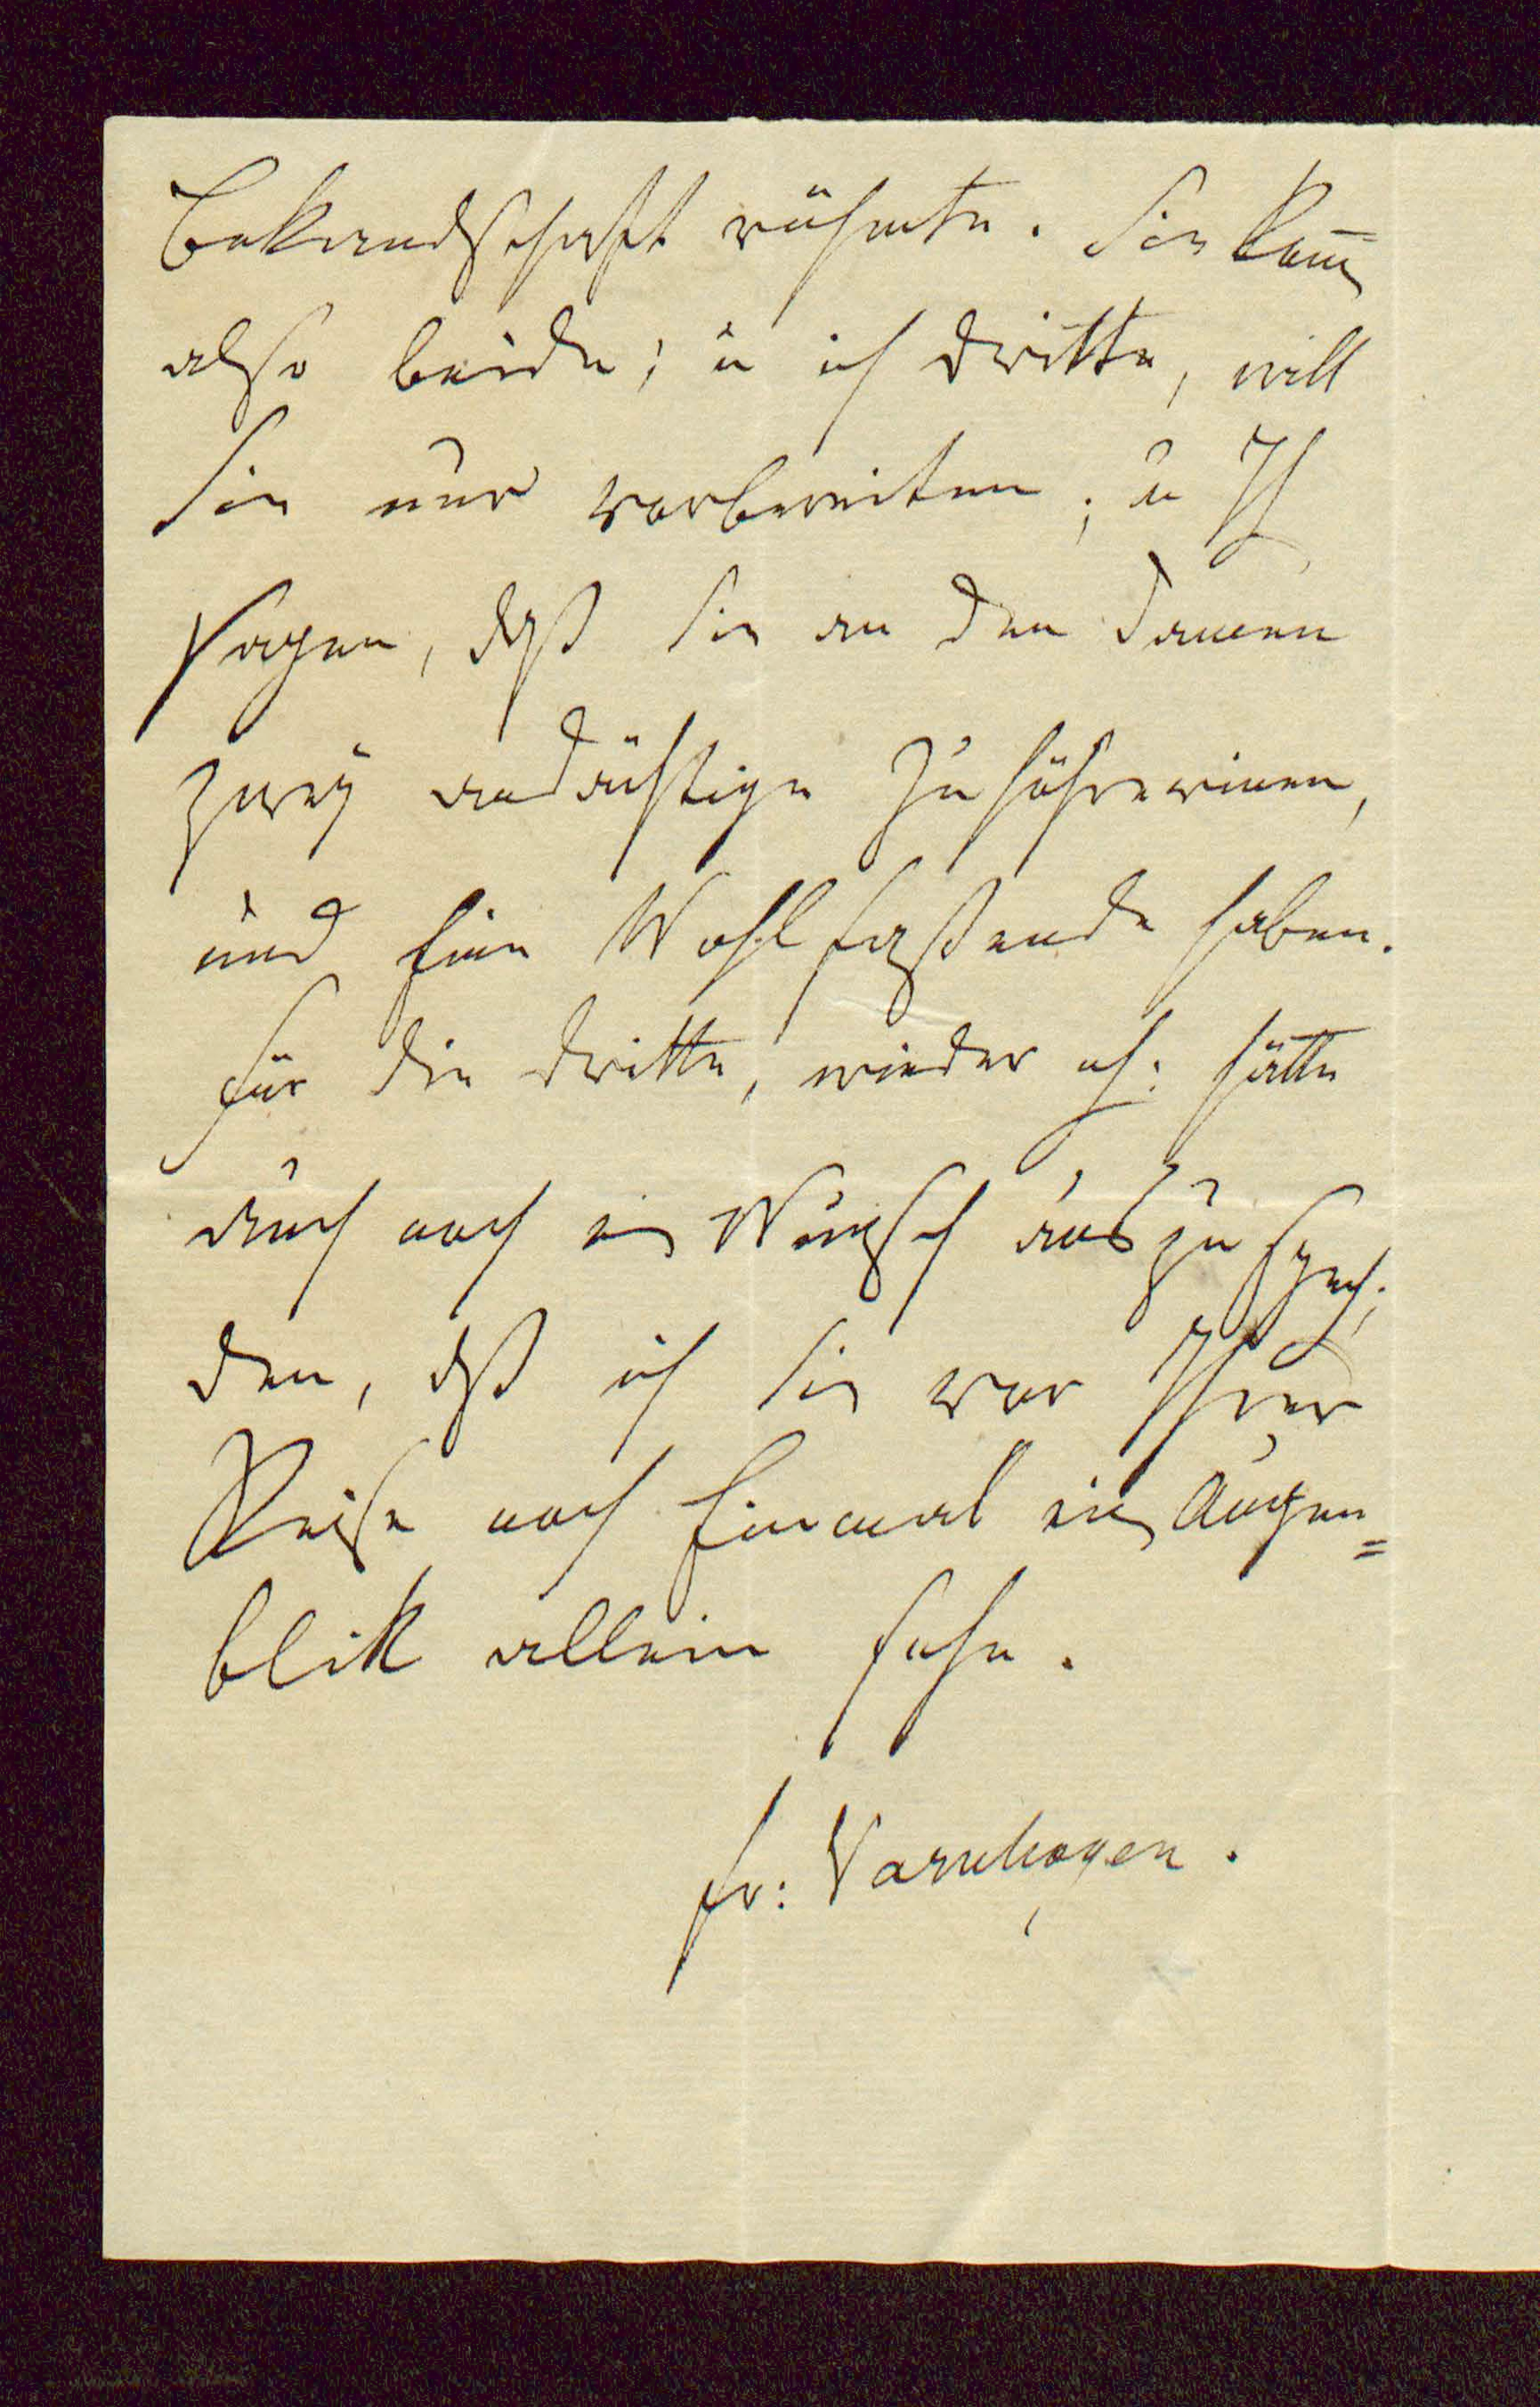 Bekandschaft rühmte. Sie kom̅en
also beide; u ich dritte, will
Sie nur vorbereiten; u Ih
sagen, daß Sie an den Damen
zwey andächtige Zuhöhrerinen,
und Eine Wohlfassende haben.
Für die dritte, wieder ich: hätte
auch noch ein Wunsch aus zu
den, daß ich Sie vor Ihrer
Reise noch Einmal ein Augen=
blik allein sehe.
Fr: Varnhagen.